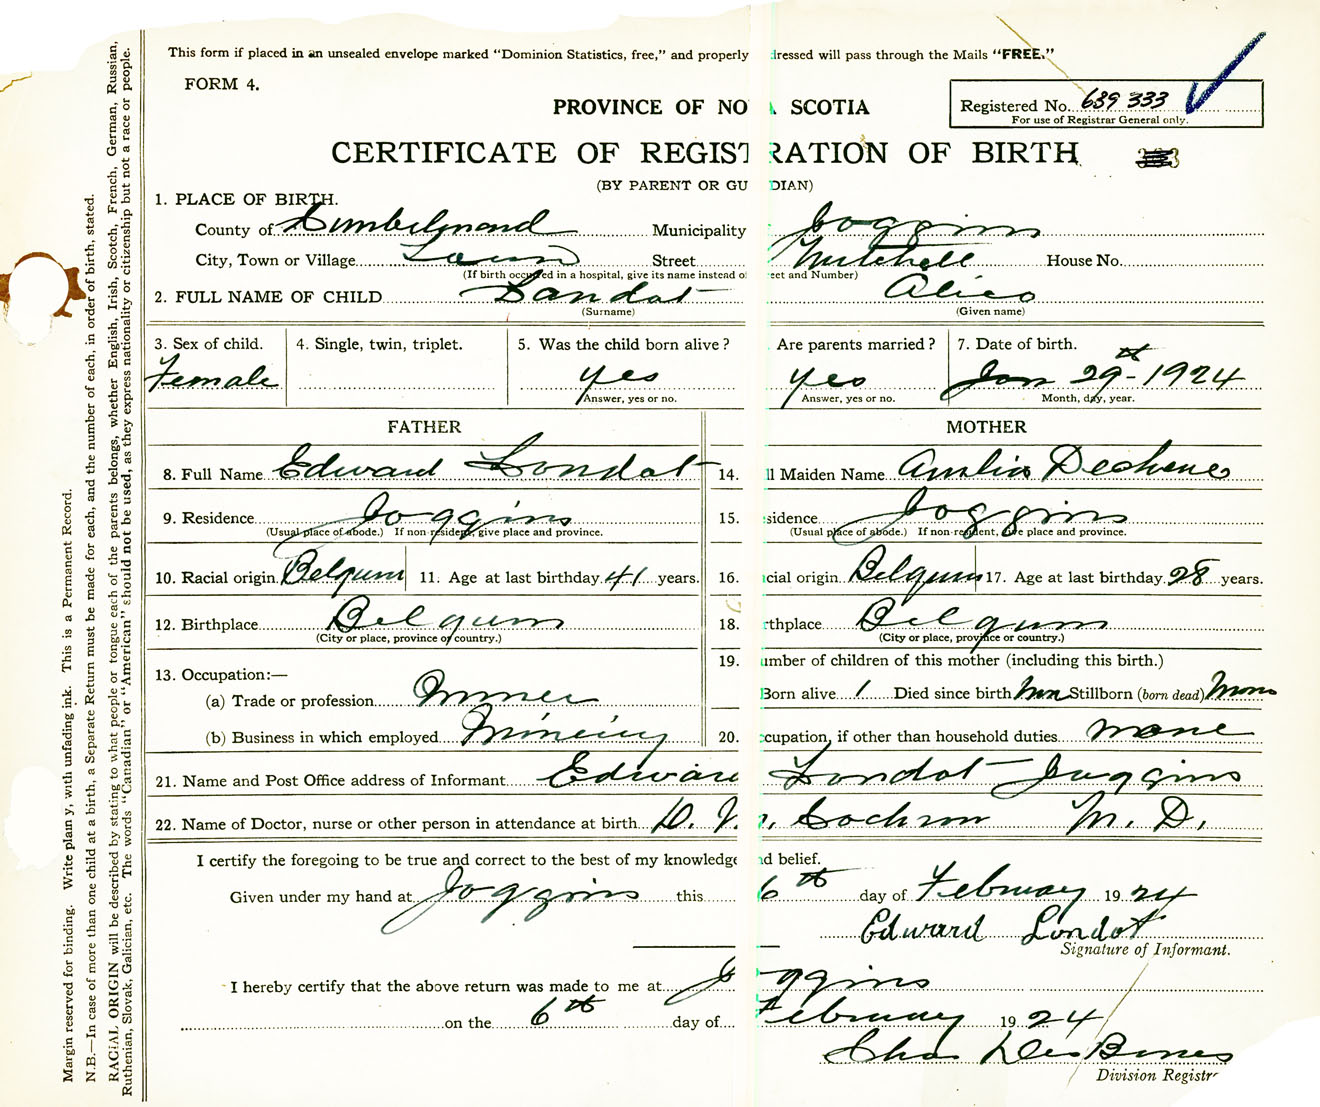 This form if placed in an unsealed envelope marked "Dominion Statistics, free," and properly dressed will pass through the Mails "FREE."
FORM 4.
PROVINCE OF NO A SCOTIA
Registered No. 639 333
For use of Registrar General only.
CERTIFICATE OF REGISTRATION OF BIRTH
(BY PARENT OR GU DIAN)
1. PLACE OF BIRTH.
County of Cumberland Municipality Joggins
City, Town or Village Town Street Mitchell House No.
(If birth occurred in a hospital, give its name instead of eet and Number)
2. FULL NAME OF CHILD Londot Alice
(Surname) (Given name)
3. Sex of child. 4. Single, twin, triplet. 5. Was the child born alive? Are parents married? 7. Date of birth.
Female yes yes Jan 29th - 1924
Answer, yes or no. Answer, yes or no. Month, day, year.
FATHER MOTHER
8. Full Name Edward Londot 14. ll Maiden Name Amelia Deshene
9. Residence Joggins 15. sidence Joggins
(Usual place of abode.) If non-resident, give place and province. (Usual place of abode.) If non-resident, give place and province.
10. Racial origin Belgum 11. Age at last birthday 41 years. 16. cial origin Belgum 17. Age at last birthday 28 years.
12. Birthplace Belgum 18. rthplace Belgum
(City or place, province or country.) (City or place, province or country.)
13. Occupation:— 19. umber of children of this mother (including this birth.)
(a) Trade or profession Miner Born alive 1 Died since birth Stillborn (born dead)
(b) Business in which employed Mining 20. ccupation, if other than household duties none
21. Name and Post Office address of Informant Edward Londot Joggins
22. Name of Doctor, nurse or other person in attendance at birth D. Cochron M. D.
I certify the foregoing to be true and correct to the best of my knowledge nd belief.
Given under my hand at Joggins this 6th day of February 1924
Edward Londot
Signature of Informant.
I hereby certify that the above return was made to me at Joggins
on the 6th day of February 1924
Chas
Division Registr
Margin reserved for binding. Write plain y, with unfading ink. This is a Permanent Record.
N.B.—In case of more than one child at a birth, a Separate Return must be made for each, and the number of each, in order of birth, stated.
RACIAL ORIGIN will be described by stating to what people or tongue each of the parents belongs, whether English, Irish, Scotch, French, German, Russian,
Ruthenian, Slovak, Galician, etc. The words "Canadian" or "American" should not be used, as they express nationality or citizenship but not a race or people.